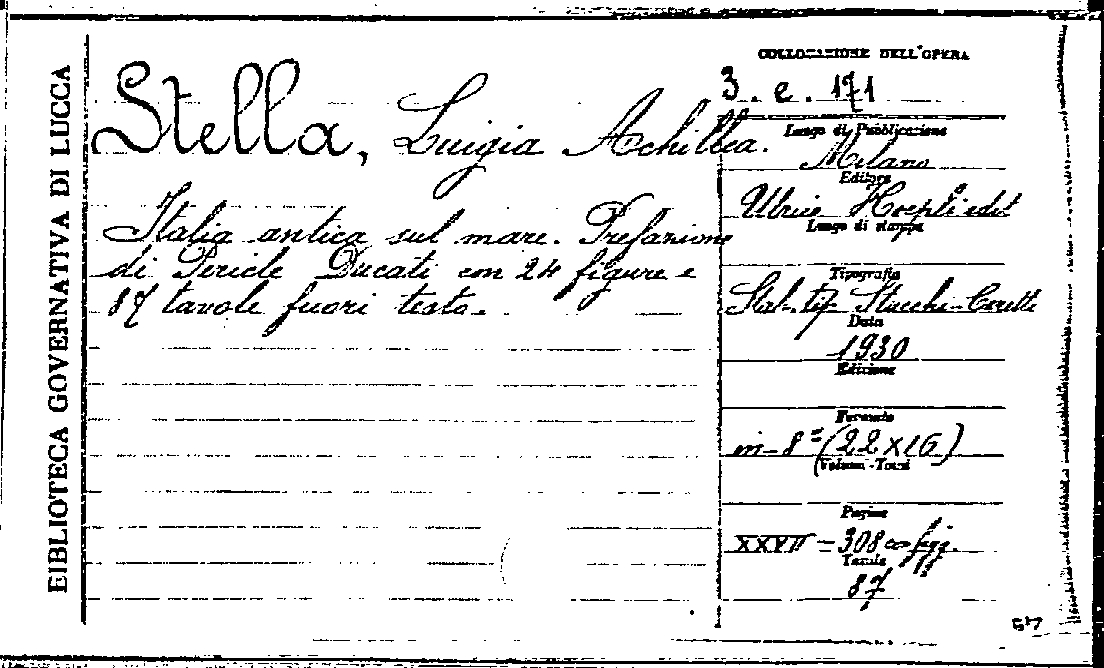 BIBLIOTECA GOVERNATIVA DI LUCCA
Stella, Luigia Achillea.
Italia antica sul mare. Prefazione
di Pericle Ducati con 24 figure e
87 tavole fuori testo.
COLLOCAZIONE DELL'OPERA
3. e. 171
Luogo di Pubblicazione
Milano
Editore
Ulrico Hoepli edit
Luogo di stampa
Tipografia
Stab. tip. Stucchi-Ceretti
Data
1930
Edizione
Formato
in-8º (22x16)
Volumi-Tomi
Pagine
XXVII-308 con figg.
Tavole
87